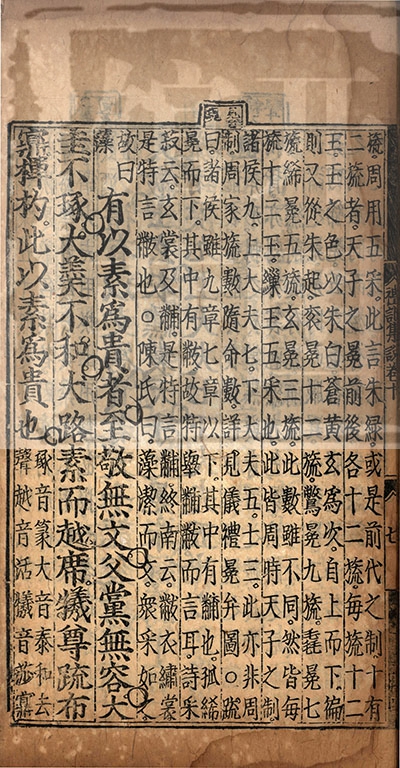 禮記集說卷十
七
禮
綠周用五采此言朱綠或是前代之制十有
二旒者天子之冕前後各十二旒每旒十二
玉玉之色以朱白蒼黃玄爲次自上而下徧
則又從朱起袞冕十二旒鷩冕九旒毳冕七
旒絺冕五旒玄冕三旒此數雖不同然皆每
旒十二玉繅玉五采也此皆周時天子之制
諸侯九上大夫七下大夫五士三此亦非周
制周家旒數隨命數詳見儀禮冕弁圖○疏
曰諸侯雖九章七章以下其中有黼也孤絺
冕而下其中有黻故特舉黼黻而言耳詩采
菽云玄袞及黼是特言黼終南云黻衣繡裳
是特言黻也○陳氏曰藻潔而文衆采如之
故曰
藻
有以素爲貴者至敬無文父黨無容大
圭不琢大羹不和大路素而越席犧尊疏布
鼏樿杓此以素爲貴也
琢音篆大音泰和去
聲越音活犧音莎鼏